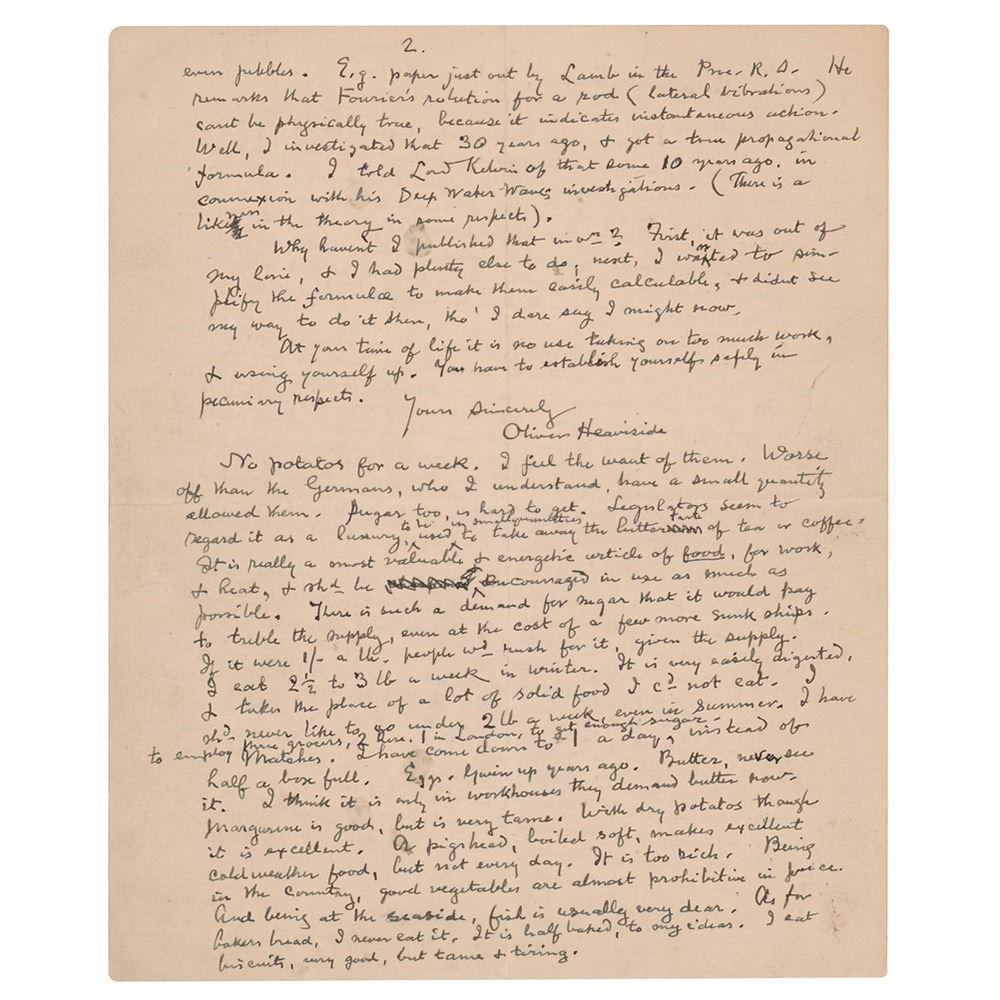 2.
even pebbles. E.g. paper just out by Lamb in the Proc. R. S. He
remarks that Fourier's solution for a rod (lateral vibrations)
cant be physically true, because it indicates instantaneous action.
Well, I investigated that 30 years ago, & got a true propagational
formula. I told Lord Kelvin of that some 10 years ago, in
connexion with his Deep Water Waves investigations. (There is a
likeness in the theory in some respects).
Why havent I published that inv~n? First, it was out of
my line, & I had plenty else to do, next, I wanted to sim-
plify the formulae to make them easily calculable, & didnt see
my way to do it then, tho' I dare say I might now.
At your time of life it is no use taking on too much work,
& using yourself up. You have to establish yourself safely in
pecuniary respects.
Yours Sincerely
Oliver Heaviside
No potatos for a week. I feel the want of them. Worse
off than the Germans, who I understand, have a small quantity
allowed them. Sugar too, is hard to get. Legislators seem to
regard it as a luxury, to be in small quantities used to take away the bitter taste of tea or coffee.
It is really a most valuable & energetic article of food, for work,
& heat, & shd be encouraged in use as much as
possible. There is such a demand for sugar that it would pay
to treble the supply, even at the cost of a few more sunk ships.
If it were 1/- a lb. people wd rush for it, given the supply.
I eat 2½ to 3 lb a week in winter. It is very easily digested,
& takes the place of a lot of solid food I cd not eat. I
shd never like to go under 2 lb a week, even in Summer. I have
to employ three grocers, 2 here, 1 in London, to get enough sugar.
Matches. I have come down to 1 a day, instead of
half a box full. Eggs. Given up years ago. Butter, never see
it. I think it is only in workhouses they demand butter now.
Margarine is good, but is very tame. With dry potatos though
it is excellent. A pigshead, boiled soft, makes excellent
coldweather food, but not every day. It is too rich. Being
in the Country, good vegetables are almost prohibitive in price.
And being at the seaside, fish is usually very dear. As for
bakers bread, I never eat it. It is half baked, to my ideas. I eat
biscuits, very good, but tame & tiring.